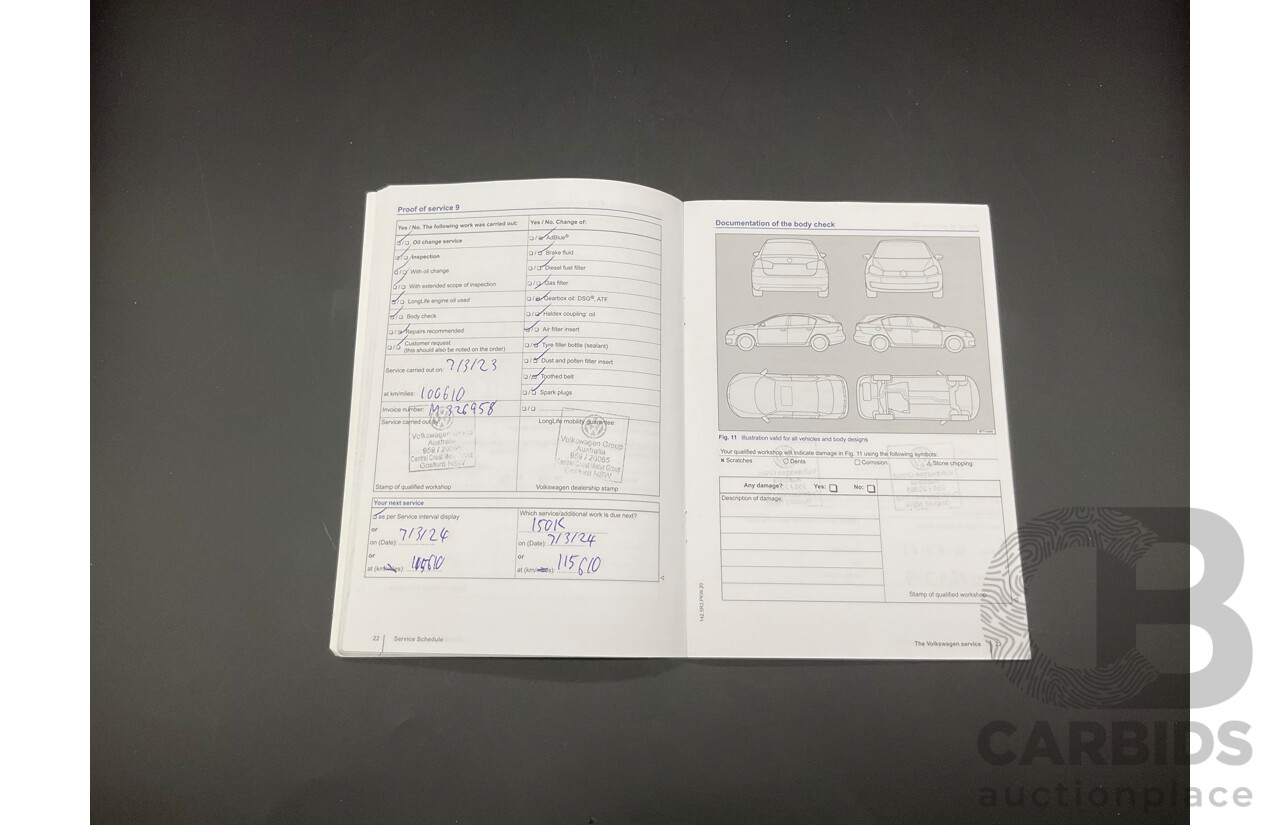 Proof of service 9
Yes / No. The following work was carried out:
Oil change service
Inspection
With oil change
With extended scope of inspection
LongLife engine oil used
Body check
Repairs recommended
Customer request
(this should also be noted on the order)
Service carried out on: 7/3/23
at km/miles: 100610
Invoice number:
Service carried out by
Volkswagen
Australia
Gosford NSW
Stamp of qualified workshop
Yes / No. Change of:
AdBlue®
Brake fluid
Diesel fuel filter
Gas filter
Gearbox oil: DSG®, ATF
Haldex coupling: oil
Air filter insert
Tyre filler bottle (sealant)
Dust and pollen filter insert
Toothed belt
Spark plugs
LongLife mobility guarantee
Volkswagen Group
Australia
959 / 20065
Central Coast Motor Group
Gosford NSW
Volkswagen dealership stamp
Your next service
as per Service interval display
or
on (Date): 7/3/24
or
at (km/miles):
Which service/additional work is due next?
150K
on (Date): 7/3/24
or
at (km/miles): 115610
22 Service Schedule
Documentation of the body check
Fig. 11 Illustration valid for all vehicles and body designs
Your qualified workshop will indicate damage in Fig. 11 using the following symbols:
Scratches Dents Corrosion Stone chipping
Any damage? Yes: No:
Description of damage:
Stamp of qualified workshop
142.5R3.PKW.20
The Volkswagen service 23
CB
CARBIDS
auctionplace